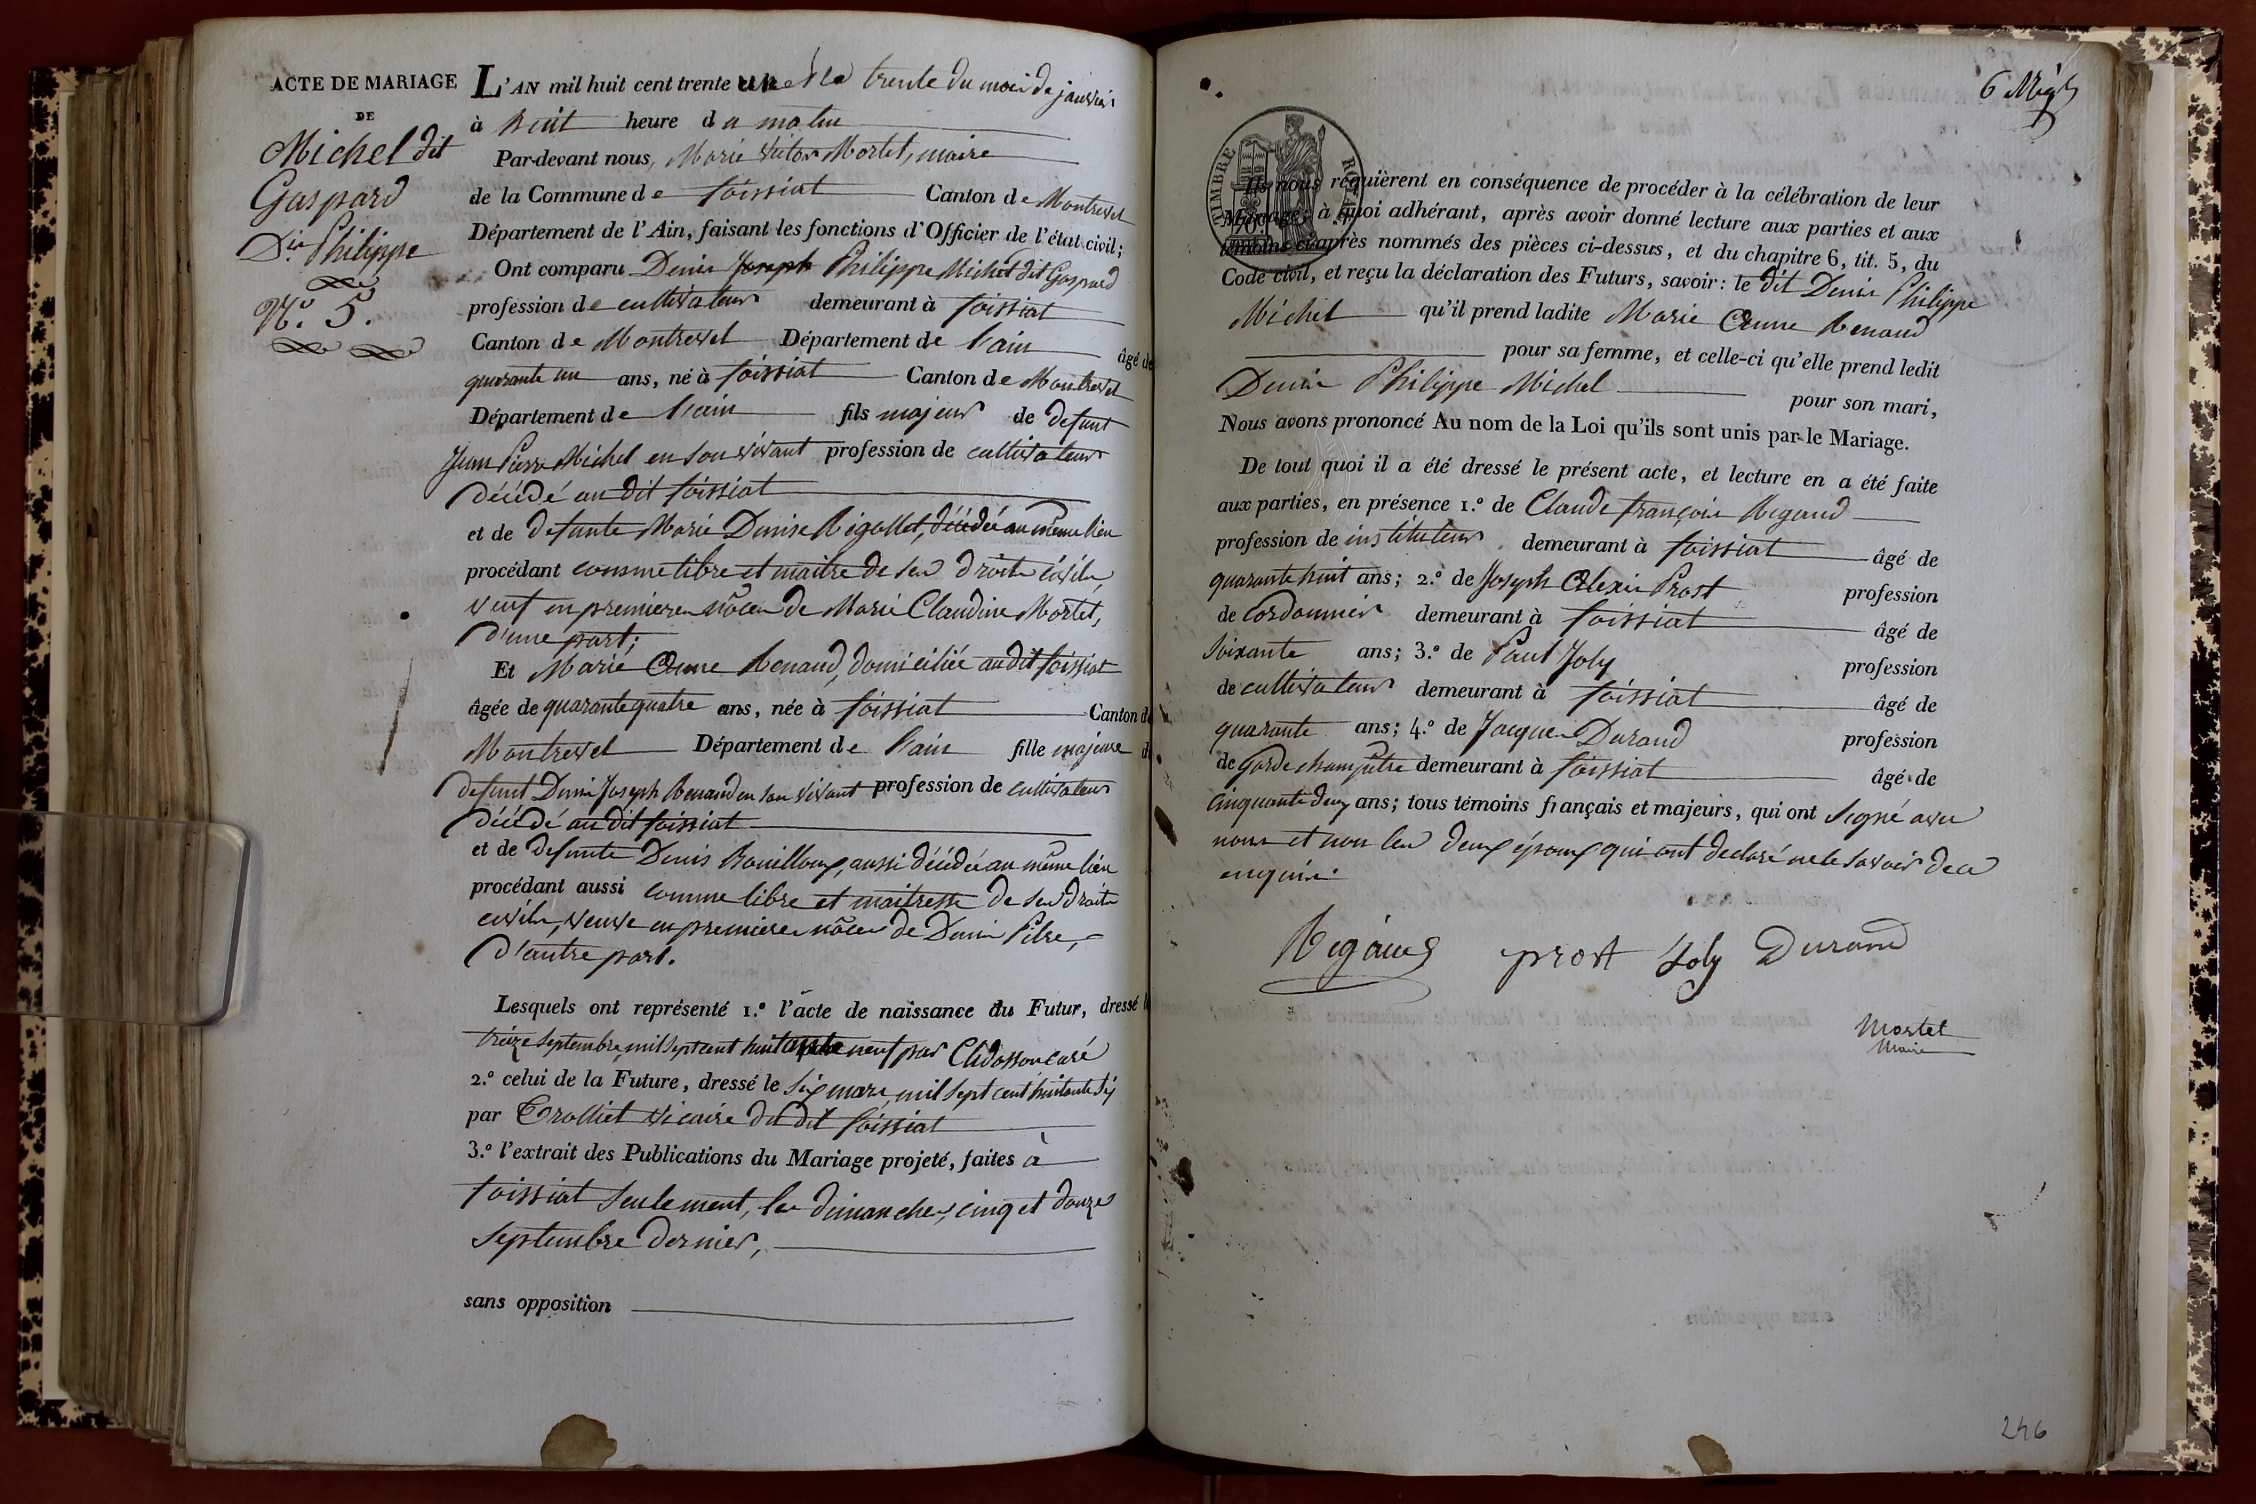 ACTE DE MARIAGE
DE
Michel dit
Gaspard
D.is Philippe
N.o 5.
L'AN mil huit cent trente un et le trente du mois de janvier
à huit heure du matin
Par-devant nous, Marie Victor Mortel, maire
de la Commune de foissiat Canton de Montrevel
Département de l'Ain, faisant les fonctions d'Officier de l'état civil;
Ont comparu Denis Joseph Philippe Michel dit Gaspard
profession de cultivateur demeurant à foissiat
Canton de Montrevel Département de l'ain âgé de
quarante un ans, né à foissiat Canton de Montrevel
Département de l'ain fils majeur de defunt
Jean Pierre Michel en son vivant profession de cultivateur
décédé au dit foissiat
et de defunte Marie Denise Rigollet, décédée au même lieu
procédant comme libre et maitre de ses droits civils,
veuf en premieres nôces de Marie Claudine Mortel,
d'une part;
Et Marie Anne Renaud, domiciliée au dit foissiat
âgée de quarante quatre ans, née à foissiat Canton de
Montrevel Département de l'ain fille majeure d
defunt Denis Joseph Renaud en son vivant profession de cultivateur
décédé au dit foissiat
et de defunte Denis Bouilloux, aussi décédée au même lieu
procédant aussi comme libre et maitresse de ses droits
civils, veuve en premieres nôces de Denis Pilre,
d'autre part.
Lesquels ont représenté 1.o l'acte de naissance du Futur, dressé l
treize septembre mil sept cent huitante neuf par curé
2.o celui de la Future, dressé le six mars mil sept cent huitante six
par Trolliet vicaire du dit foissiat
3.o l'extrait des Publications du Mariage projeté, faites à
foissiat seulement, les dimanches, cinq et douze
septembre dernier,
sans opposition
6 Mig.s
TIMBRE ROYAL
Ils nous requièrent en conséquence de procéder à la célébration de leur
Mariage; à quoi adhérant, après avoir donné lecture aux parties et aux
témoins ci-après nommés des pièces ci-dessus, et du chapitre 6, tit. 5, du
Code civil, et reçu la déclaration des Futurs, savoir: le dit Denis Philippe
Michel qu'il prend ladite Marie Anne Renaud
pour sa femme, et celle-ci qu'elle prend ledit
Denis Philippe Michel pour son mari,
Nous avons prononcé Au nom de la Loi qu'ils sont unis par le Mariage.
De tout quoi il a été dressé le présent acte, et lecture en a été faite
aux parties, en présence 1.o de Claude françois Regaud
profession de instituteur demeurant à foissiat âgé de
quarante huit ans; 2.o de Joseph Alexis Prost profession
de Cordonnier demeurant à foissiat âgé de
soixante ans; 3.o de Paul Joly profession
de cultivateur demeurant à foissiat âgé de
quarante ans; 4.o de Jacques Durand profession
de Garde champêtre demeurant à foissiat âgé de
cinquante deux ans; tous témoins français et majeurs, qui ont signé avec
nous et non les deux époux qui ont declaré ne le savoir de ce
enquis.
Regaud prost Joly Durand
Mortel
Maire
246